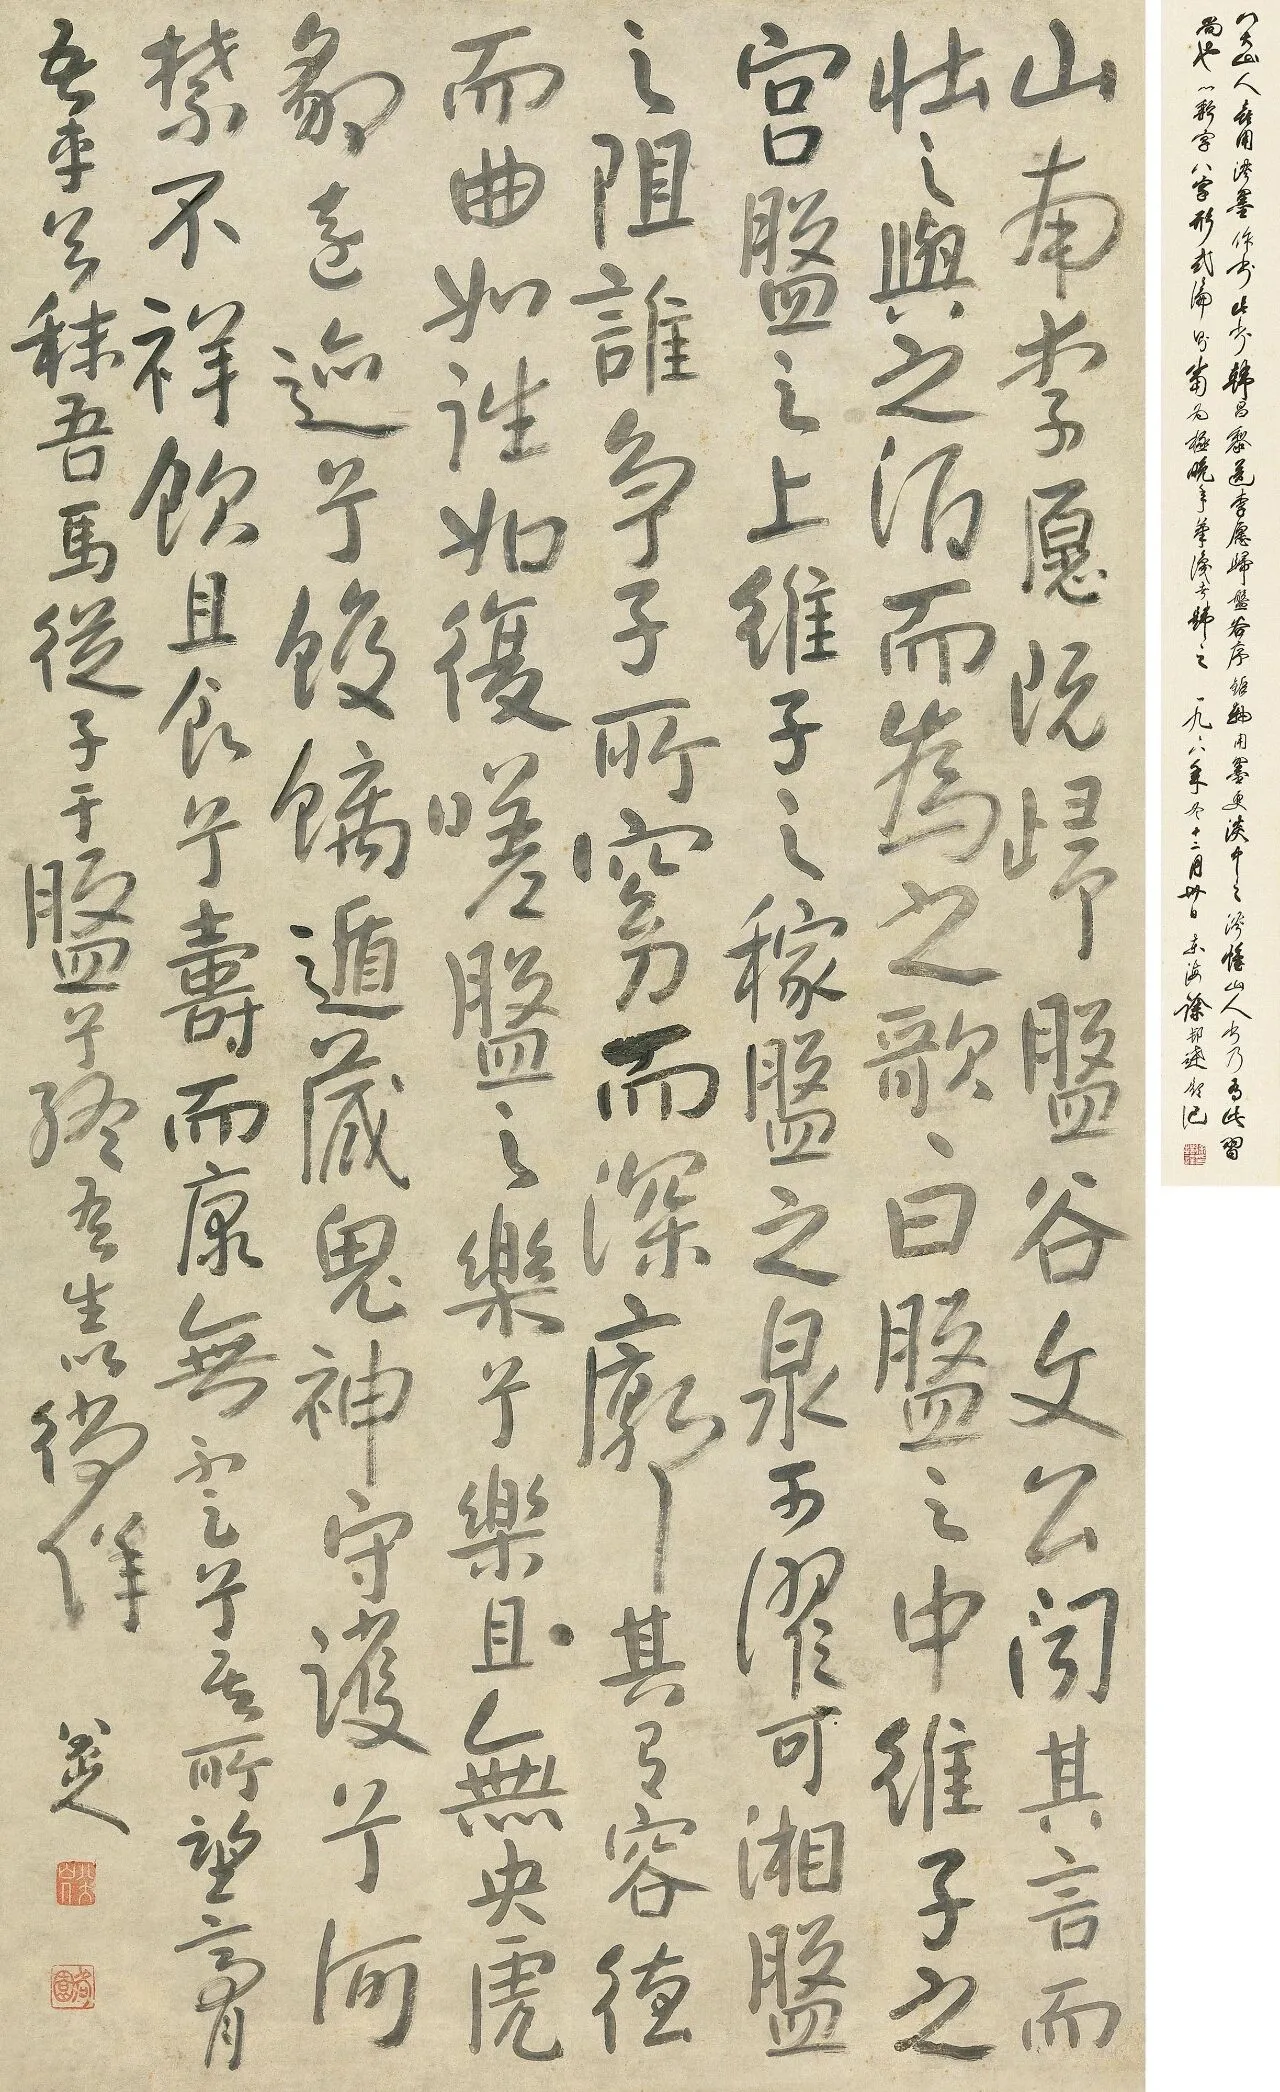 八大山人喜用淡墨作書此書韓昌黎送李愿歸盤谷序
尚也八字形式編
一九八六年冬十二月卅日東海徐邦達題記
山南李愿既歸盤谷文公聞其言而
壯之與之酒而為之歌曰盤之中維子之
宮盤之上維子之稼盤之泉可濯可湘盤
之阻誰爭子所窈而深廓其有容繚
而曲如往如復嗟盤之樂兮樂且無央虎
豹遠迹兮蛟螭遁藏鬼神守護兮呵
禁不祥飲且食兮壽而康無不足兮奚所望膏
吾車兮秣吾馬從子于盤兮終吾生以徜徉
八大山人
八大山人